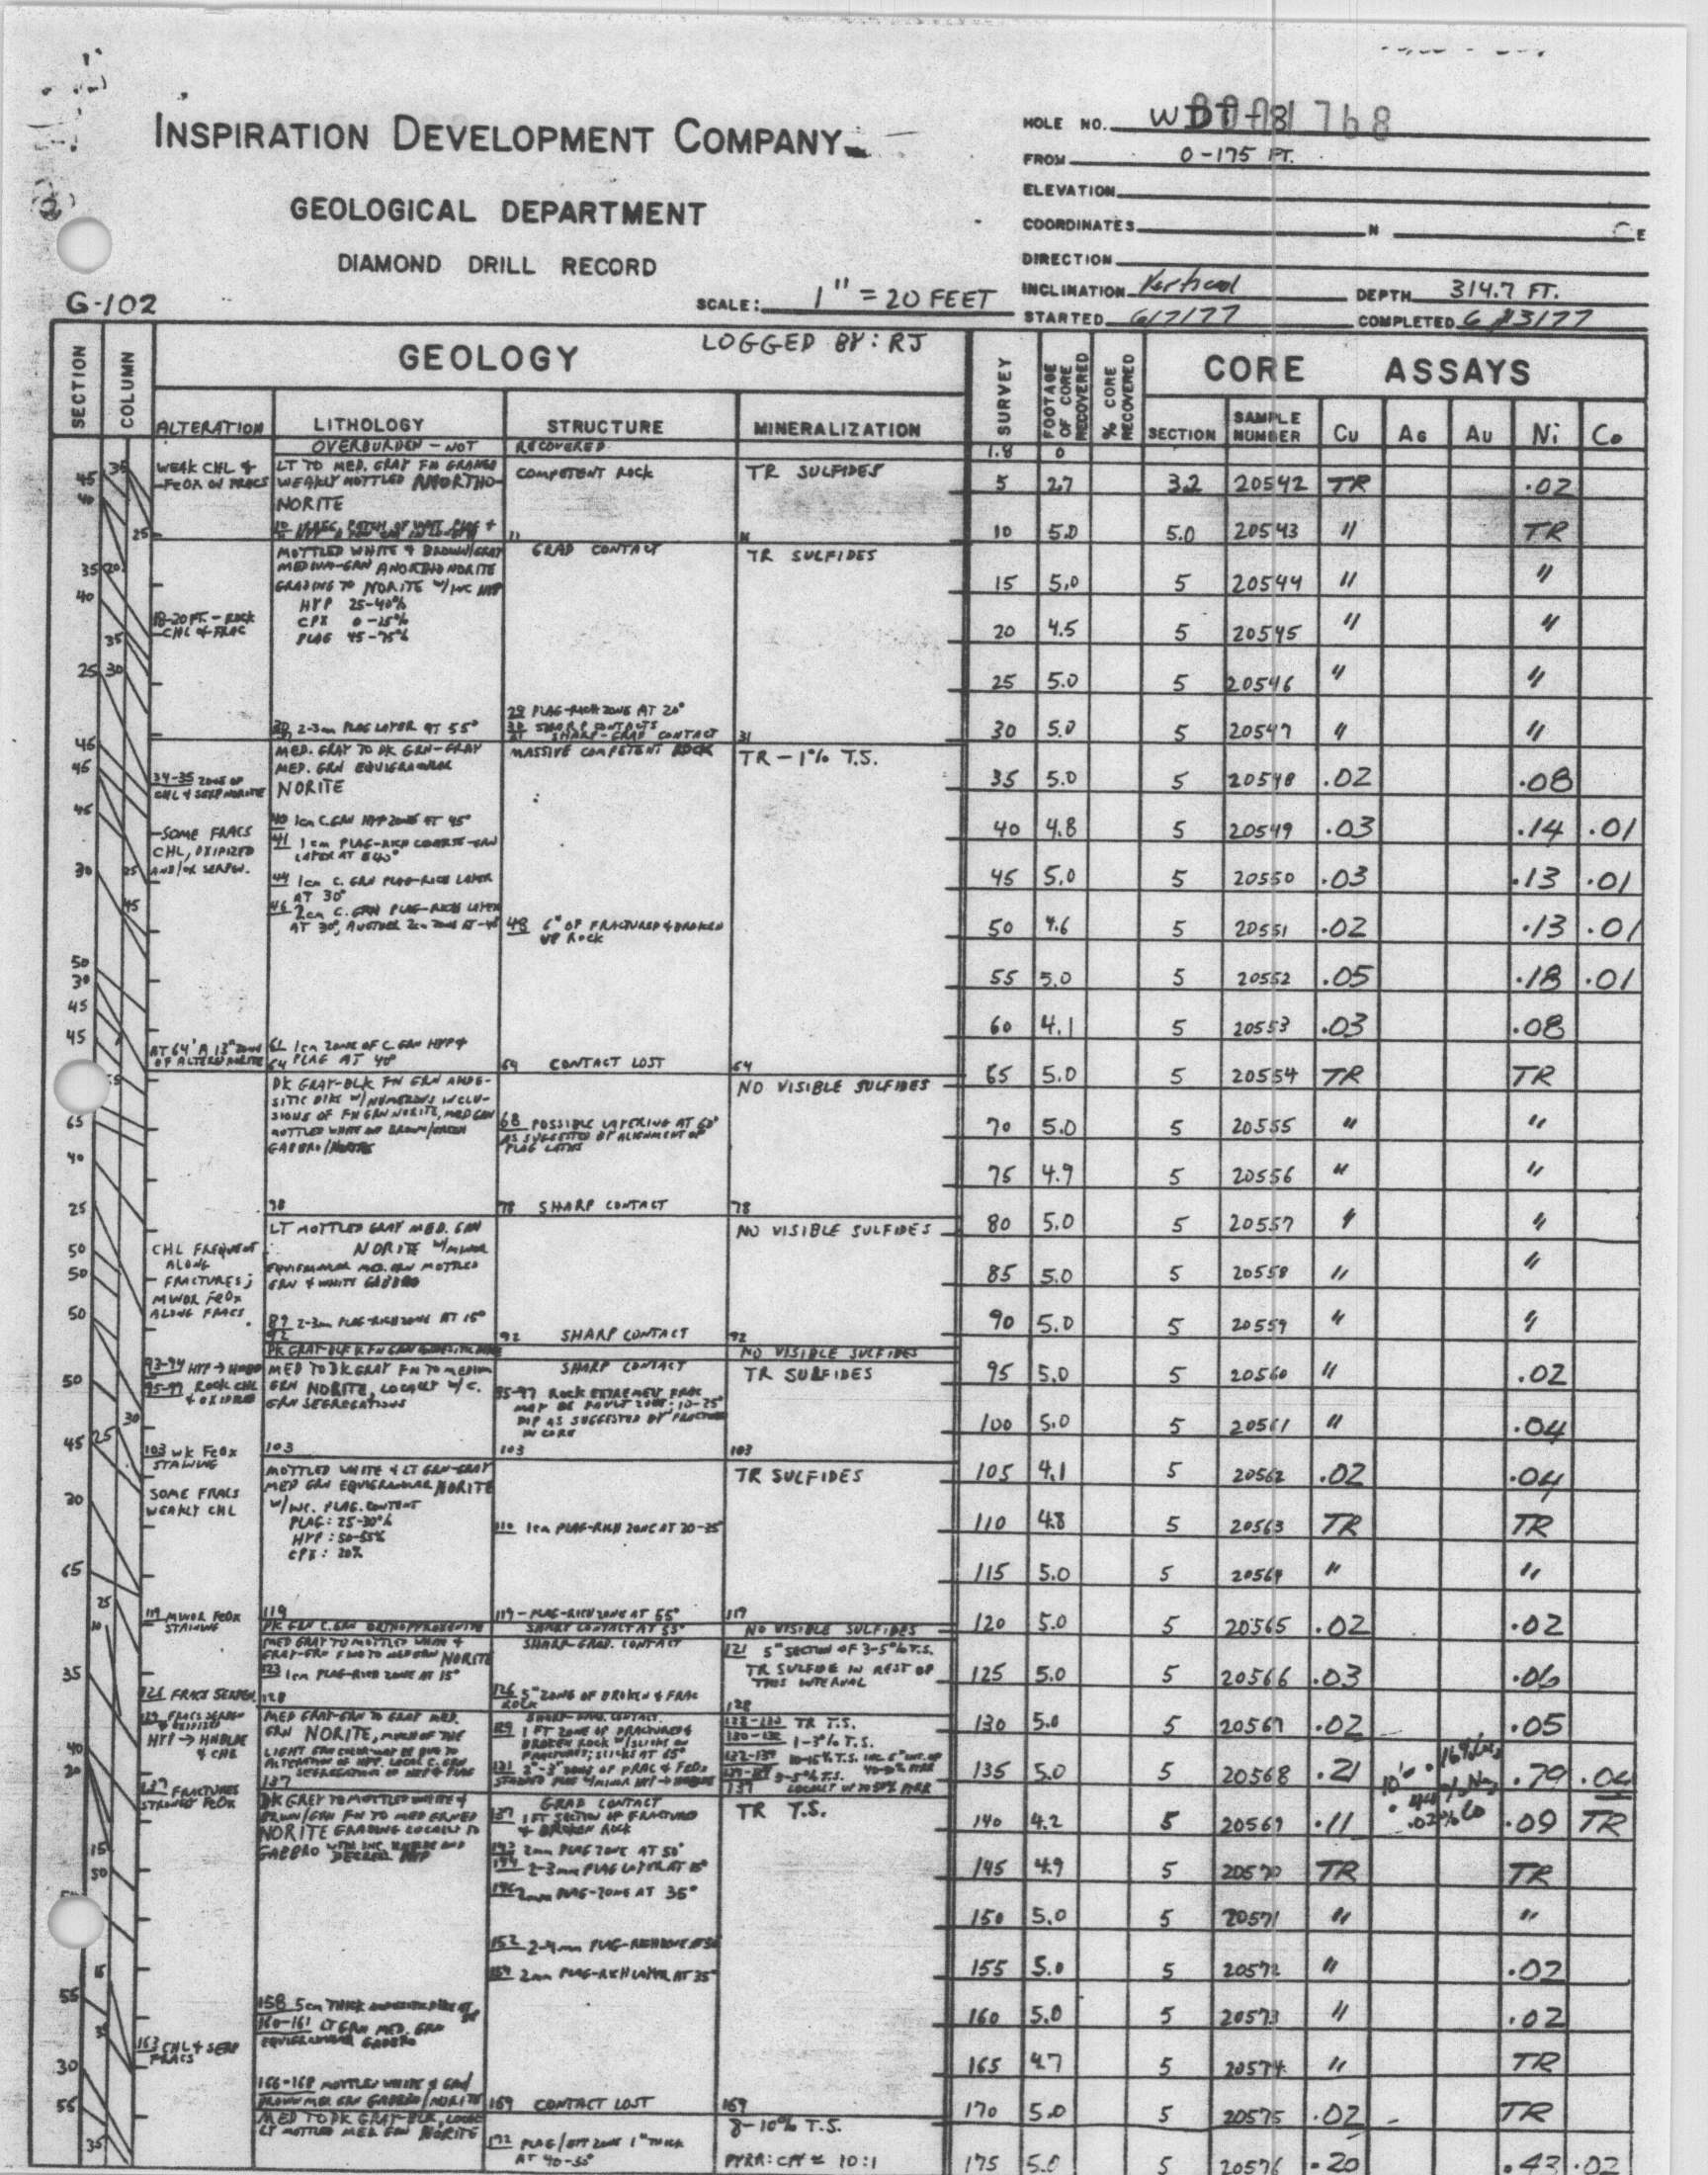 INSPIRATION DEVELOPMENT COMPANY
GEOLOGICAL DEPARTMENT
DIAMOND DRILL RECORD
G-102
SCALE: 1" = 20 FEET
HOLE NO.
FROM 0-175 FT.
ELEVATION
COORDINATES N E
DIRECTION
INCLINATION Vertical DEPTH 314.7 FT.
STARTED 6/7/77 COMPLETED 6/13/77
SECTION COLUMN GEOLOGY LOGGED BY: RJ SURVEY FOOTAGE OF CORE RECOVERED % CORE RECOVERED CORE ASSAYS
ALTERATION LITHOLOGY STRUCTURE MINERALIZATION SECTION SAMPLE NUMBER Cu AG AU Ni Co
OVERBURDEN - NOT RECOVERED 1.8 0
WEAK CHL & FeOx ON FRACS
LT TO MED. GRAY FN GRAINED
WEAKLY MOTTLED ANORTHO-
NORITE
COMPETENT ROCK
TR SULFIDES
5 2.7 3.2 20542 TR .02
10 5.0 5.0 20543 " TR
MOTTLED WHITE & BROWN/GRAY
MEDIUM-GRN ANORTHONORITE
GRADING TO NORITE W/INC HYP
HYP 25-40%
CPX 0-15%
PLAG 45-75%
GRAD CONTACT
TR SULFIDES
18-20 FT. - ROCK
CHL & FRAC
15 5.0 5 20544 " "
20 4.5 5 20545 " "
25 5.0 5 20546 " "
2-3mm PLAG LAYER AT 55°
29 PLAG-RICH ZONE AT 20°
30 SHARP CONTACTS
31 SHARP-GRAD CONTACT
31
30 5.0 5 20547 " "
MED. GRAY TO DK GRN-GRAY
MED. GRN EQUIGRANULAR
NORITE
MASSIVE COMPETENT ROCK
TR - 1% T.S.
34-35 ZONE OF
CHL & SERP NORITE
35 5.0 5 20548 .02 .08
40 1cm C.GRN HYP ZONE AT 45°
41 1cm PLAG-RICH COARSE-GRN
44 1cm C. GRN PLAG-RICH LAYER
AT 30°
46 2cm C. GRN PLAG-RICH LAYER
SOME FRACS
CHL, OXIDIZED
AND/OR SERPEN.
48 6" OF FRACTURED & BROKEN
UP ROCK
40 4.8 5 20549 .03 .14 .01
45 5.0 5 20550 .03 .13 .01
50 4.6 5 20551 .02 .13 .01
55 5.0 5 20552 .05 .18 .01
60 4.1 5 20553 .03 .08
AT 64' A 13" ZONE
OF ALTERED NORITE
61 1cm ZONE OF C.GRN HYP &
PLAG AT 40°
64
64 CONTACT LOST
64
65 5.0 5 20554 TR TR
DK GRAY-BLK FN GRN ANDE-
SITIC DIKE W/NUMEROUS INCLU-
SIONS OF FN GRN NORITE, MED GRN
MOTTLED WHITE AND BROWN/GREEN
GABBRO/NORITE
68 POSSIBLE LAYERING AT 60°
AS SUGGESTED BY ALIGNMENT OF
PLAG LATHS
NO VISIBLE SULFIDES
70 5.0 5 20555 " "
75 4.9 5 20556 " "
78
78 SHARP CONTACT
78
80 5.0 5 20557 " "
LT MOTTLED GRAY MED. GRN
NORITE W/MINOR
EQUIGRANULAR MED. GRN MOTTLED
GRN & WHITE GABBRO
NO VISIBLE SULFIDES
CHL FREQUENT
ALONG
FRACTURES;
MINOR FeOx
ALONG FRACS.
85 5.0 5 20558 " "
89 2-3mm PLAG-RICH ZONE AT 15°
92
92 SHARP CONTACT
92
90 5.0 5 20559 " "
DK GRAY-BLK FN GRN ANDESITIC DIKE
NO VISIBLE SULFIDES
93-94 HYP → HNBD
95-97 ROCK CHL
& OXIDIZED
MED TO DK GRAY FN TO MEDIUM
GRN NORITE, LOCALLY W/C.
GRN SEGREGATIONS
SHARP CONTACT
95-97 ROCK EXTREMELY FRAC
MAY BE FAULT ZONE: 10-25°
DIP AS SUGGESTED BY FRACTURE
IN CORE
TR SULFIDES
95 5.0 5 20560 " .02
100 5.0 5 20561 " .04
103 WK FeOx
STAINING
103
103
103
SOME FRACS
WEAKLY CHL
MOTTLED WHITE & LT GRN-GRAY
MED GRN EQUIGRANULAR NORITE
W/INC. PLAG. CONTENT
PLAG: 25-30%
HYP: 50-55%
CPX: 20%
110 1cm PLAG-RICH ZONE AT 20-25°
TR SULFIDES
105 4.1 5 20562 .02 .04
110 4.8 5 20563 TR TR
115 5.0 5 20564 " "
119 MINOR FeOx
STAINING
119
119 - PLAG-RICH ZONE AT 55°
119
DK GRN C.GRN ORTHOPYROXENITE
SHARP CONTACT AT 55°
NO VISIBLE SULFIDES
120 5.0 5 20565 .02 .02
MED GRAY TO MOTTLED WHITE &
GRAY-GRN FN TO MED GRN NORITE
123 1cm PLAG-RICH ZONE AT 15°
SHARP-GRAD. CONTACT
121 5" SECTION OF 3-5% T.S.
TR SULFIDE IN REST OF
THIS INTERVAL
126 5" ZONE OF BROKEN & FRAC
ROCK
128
128
125 5.0 5 20566 .03 .06
HYP → HNBLDE
& CHL
MED GRAY-GRN TO GRAY MED.
GRN NORITE, MUCH OF THE
LIGHT GRN COLOR MAY BE DUE TO
ALTERATION OF HYP. LOCAL C. GRN
SEGREGATION OF HYP & PLAG
129 1 FT ZONE OF FRACTURED &
BROKEN ROCK W/SLICKS ON
FRACTURES; SLICKS AT 65°
128-130 TR T.S.
130-132 1-3% T.S.
130 5.0 5 20567 .02 .05
135 5.0 5 20568 .21 .79 .04
137 FRACTURES
STRONGLY FeOx
137
137
DK GREY TO MOTTLED WHITE &
BRWN/GRN FN TO MED GRNED
NORITE GRADING LOCALLY TO
GABBRO WITH INC
GRAD CONTACT
137 1 FT SECTION OF FRACTURED
& BROKEN ROCK
142 2mm PLAG ZONE AT 50°
144 2-3mm PLAG LAYER AT 15°
146 2mm PLAG-ZONE AT 35°
152 2-4mm PLAG-RICH ZONE AT
154 2mm PLAG-RICH LAYER AT 35°
TR T.S.
140 4.2 5 20569 .11 .09 TR
145 4.9 5 20570 TR TR
150 5.0 5 20571 " "
155 5.0 5 20572 " .02
158 5cm THICK
160-161 LT GRN MED. GRN
EQUIGRANULAR GABBRO
163 CHL & SERP
FRACS
160 5.0 5 20573 " .02
165 4.7 5 20574 " TR
166-168 MOTTLED WHITE & GRN/
BROWN MED GRN GABBRO/NORITE
169 CONTACT LOST
169
170 5.0 5 20575 .02 - TR
MED TO DK GRAY-BLK, LOCALLY
LT MOTTLED MED GRN NORITE
172 PLAG/HYP ZONE 1" THICK
AT 40-50°
8-10% T.S.
PYRR:CPY ≈ 10:1
175 5.0 5 20576 .20 .43 .02